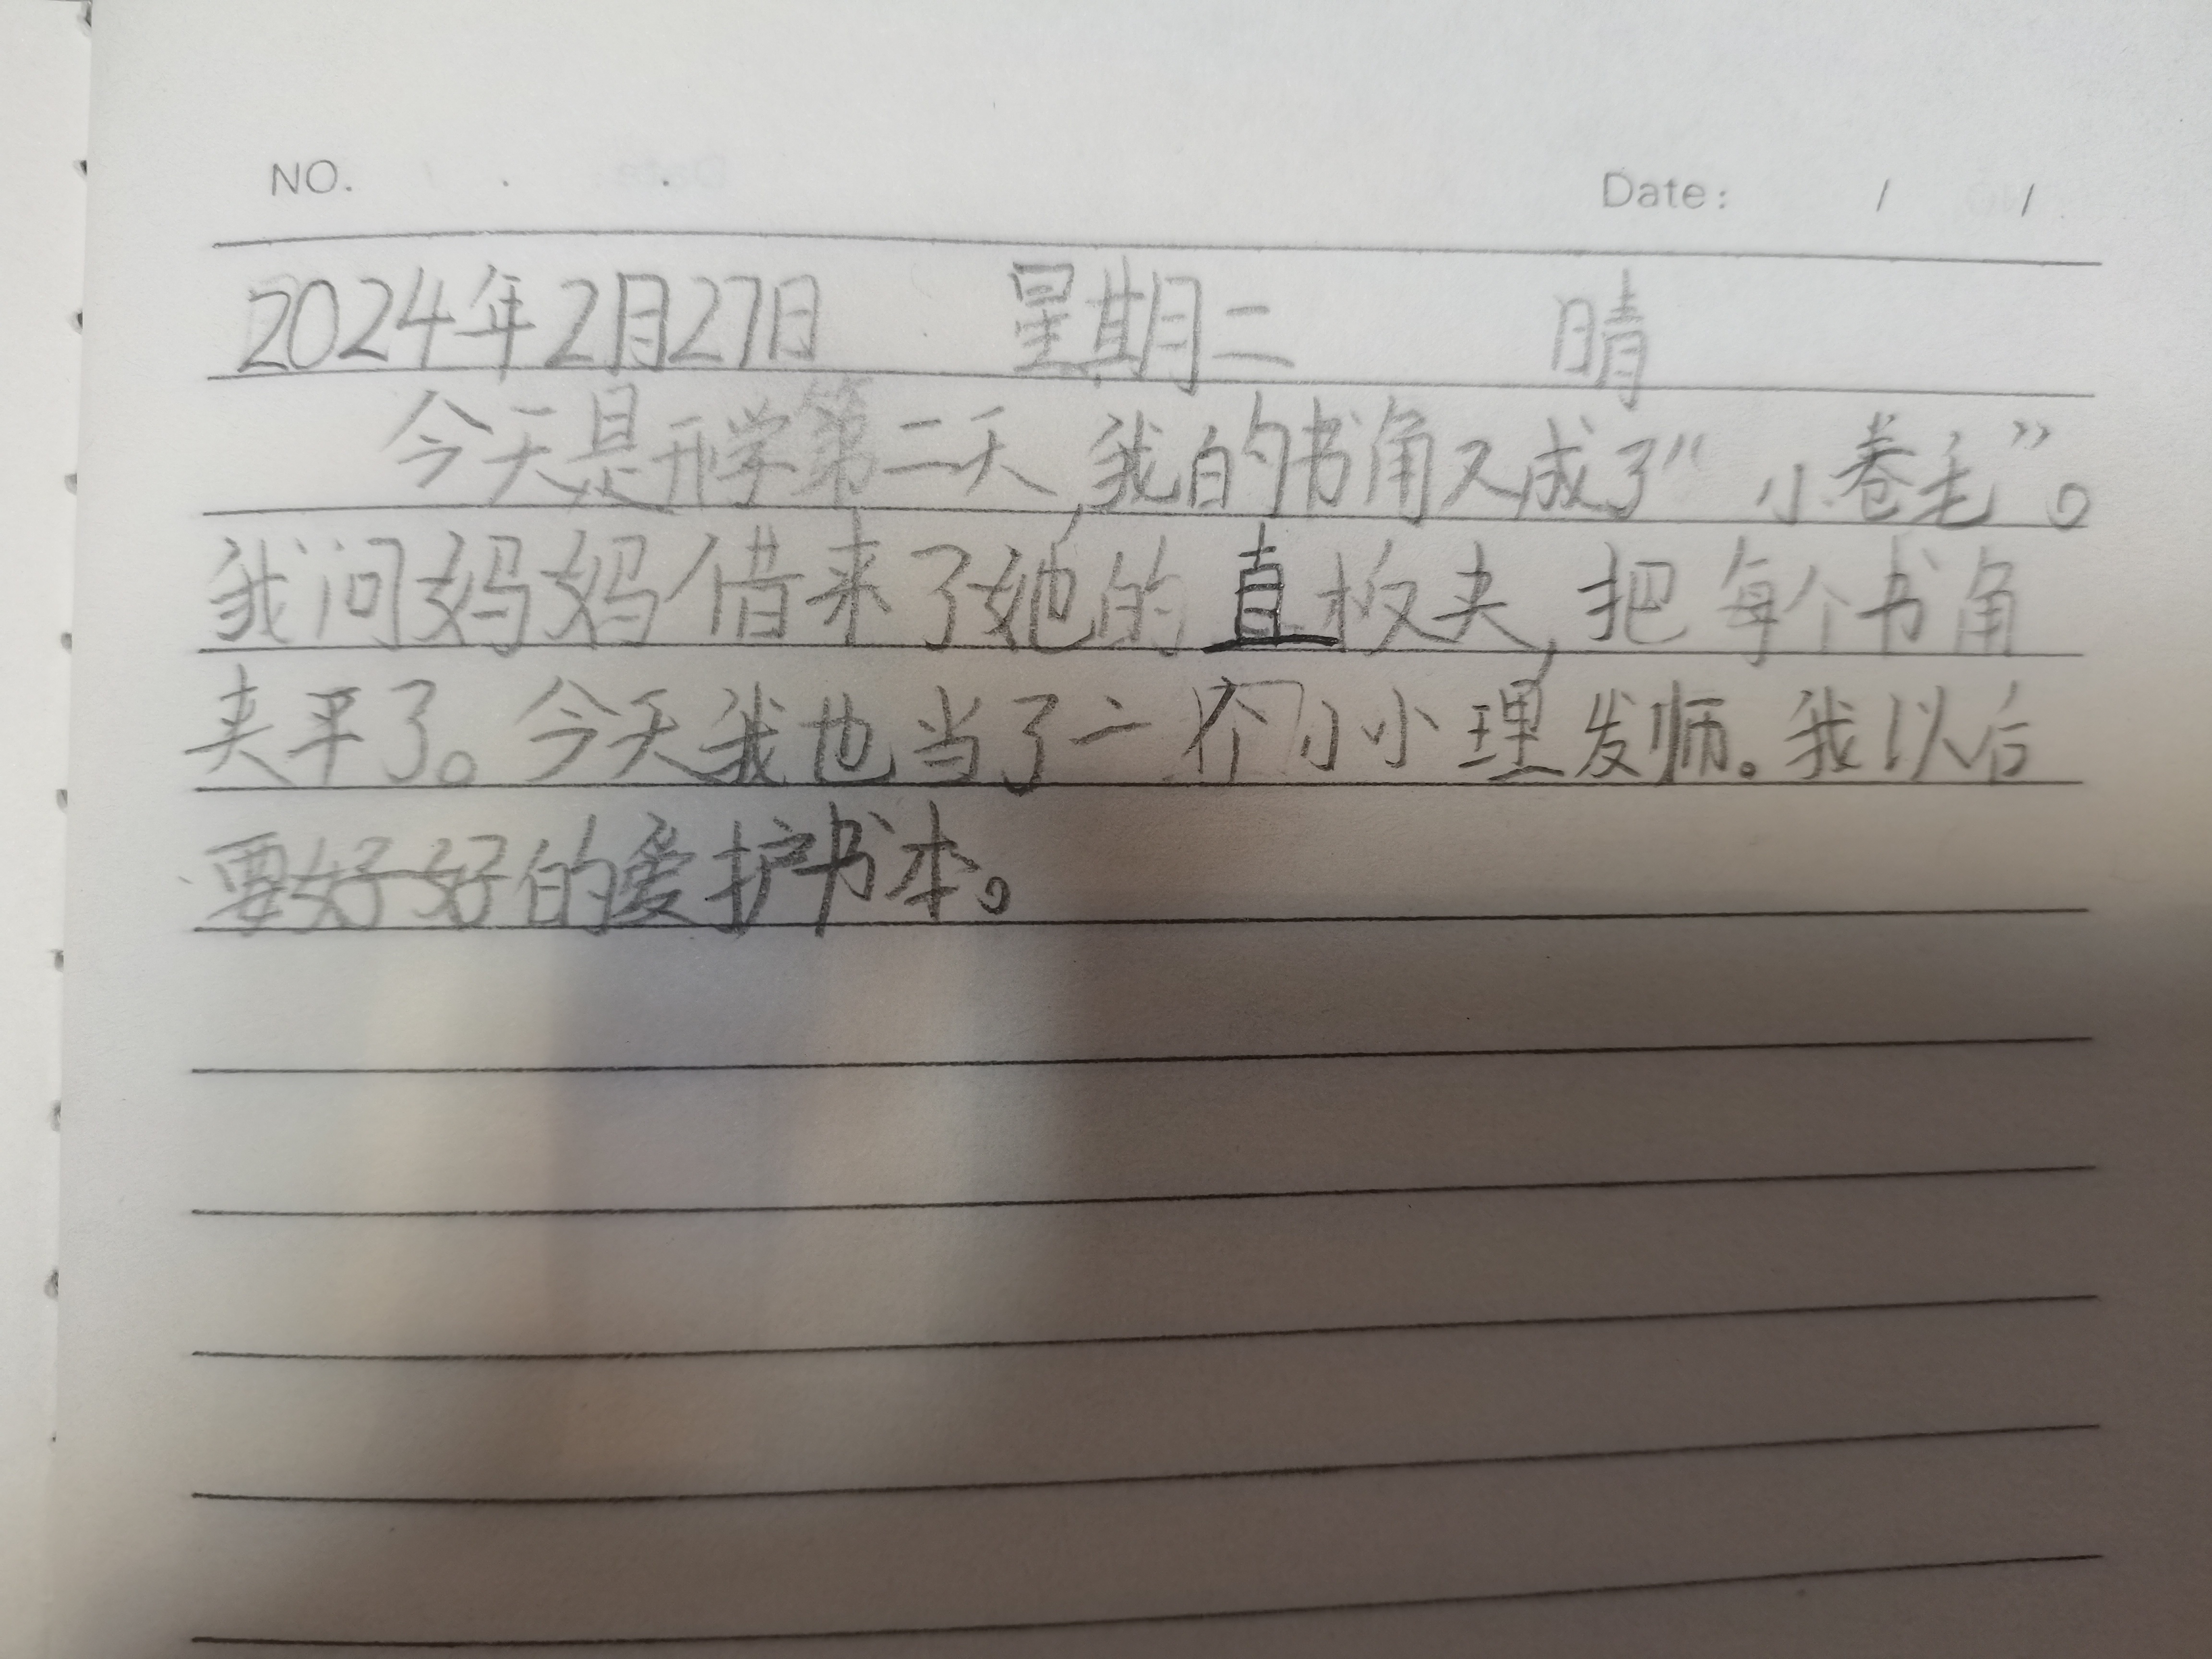 NO.
Date: / /
2024年2月27日 星期二 晴
今天是开学第二天,我的书角又成了“小卷毛”。
我问妈妈借来了她的直板夹,把每个书角
夹平了。今天我也当了一个小小理发师。我以后
要好好的爱护书本。